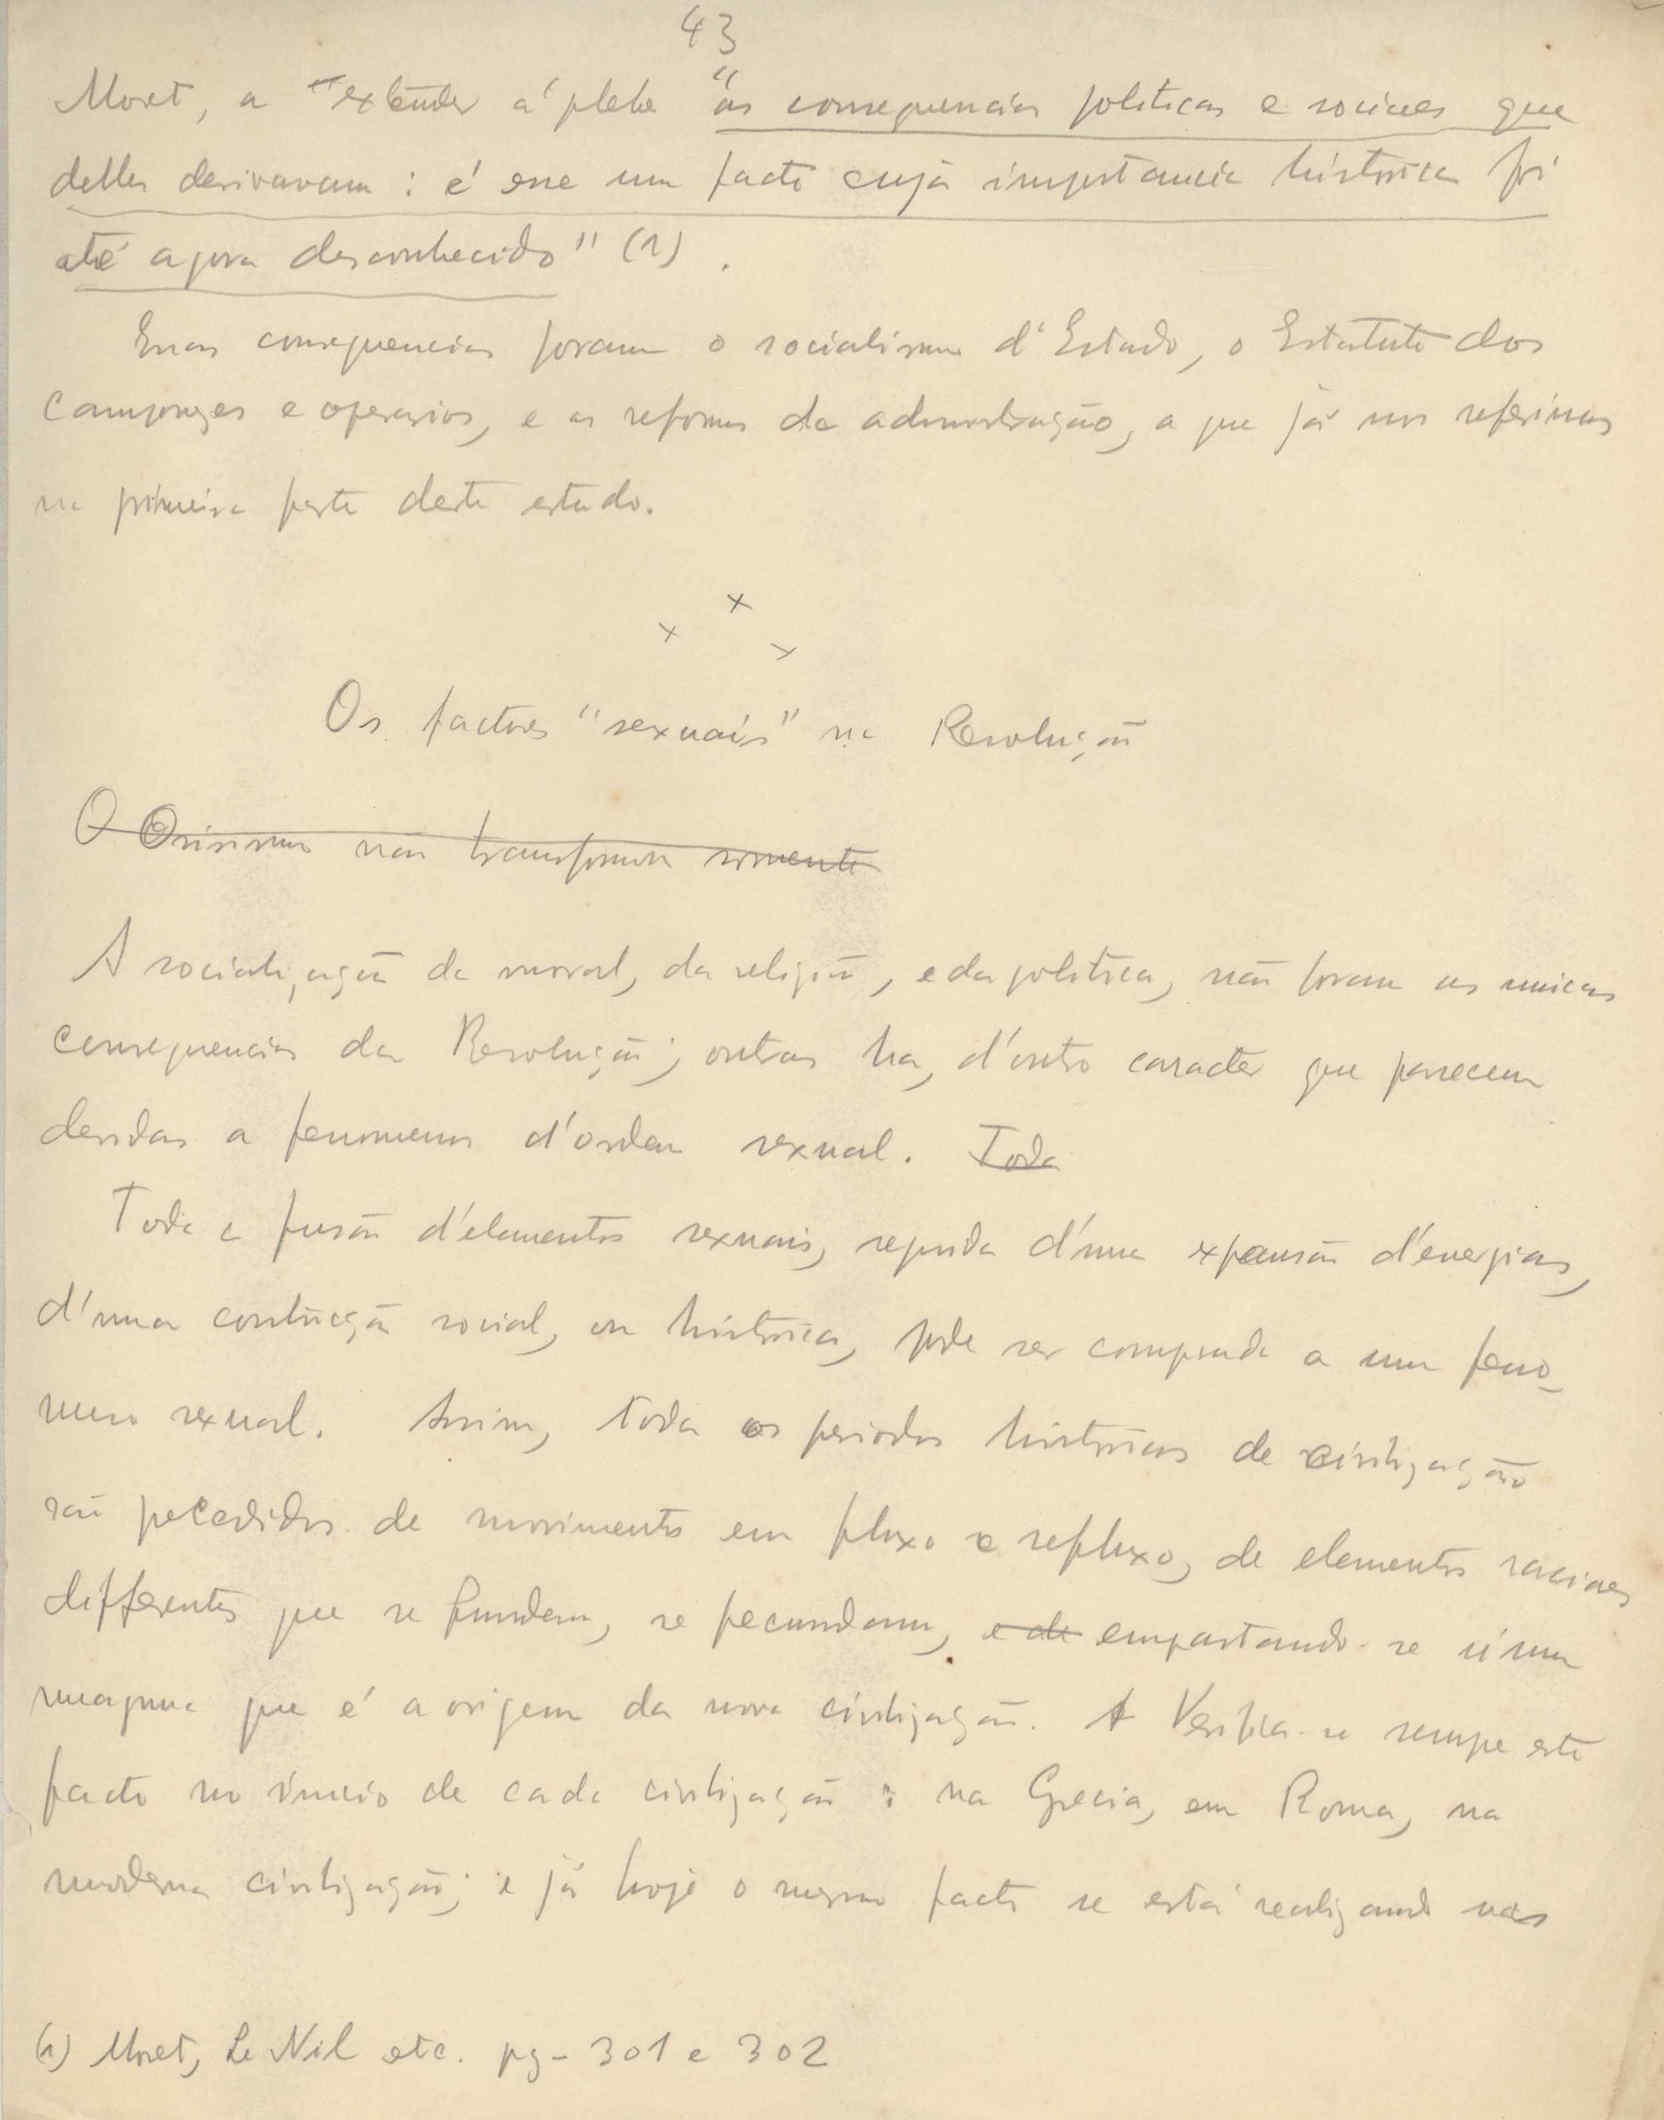 43
Moret, a "extender á plebe "as consequencias politicas e sociaes que
delles derivavam : é esse um facto cuja importancia historica foi
até agora desconhecido" (1) .
Essas consequencias foram o socialismo d'Estado, o Estatuto dos
Camponezes e operarios, e as reformas da administração, a que já nos referimos
na primeira parte deste estudo.
x
x x
Os factores "sexuais" na Revolução
O Osirismo não transformou somente
A socialização da moral, da religião, e da politica, não foram as unicas
consequencias da Revolução; outras ha, d'outro caracter que parecem
devidas a fenomenos d'ordem sexual. Toda
Toda a fusão d'elementos sexuais, seguida d'uma expansão d'energias,
d'uma social, ou historica, pode ser comparada a um feno-
meno sexual. Assim, todos os periodos historicos de civilização
são precedidos de movimentos em fluxo e refluxo, de elementos raciaes
differentes que se fundem, se fecundam, e de empastando-se n'um
magma que é a origem da nova civilização. A Verifica-se sempre este
facto no inicio de cada civilização : na Grecia, em Roma, na
moderna civilização; e já hoje o mesmo facto se está realizando nas
(1) Moret, Le Nil etc. pg - 301 e 302